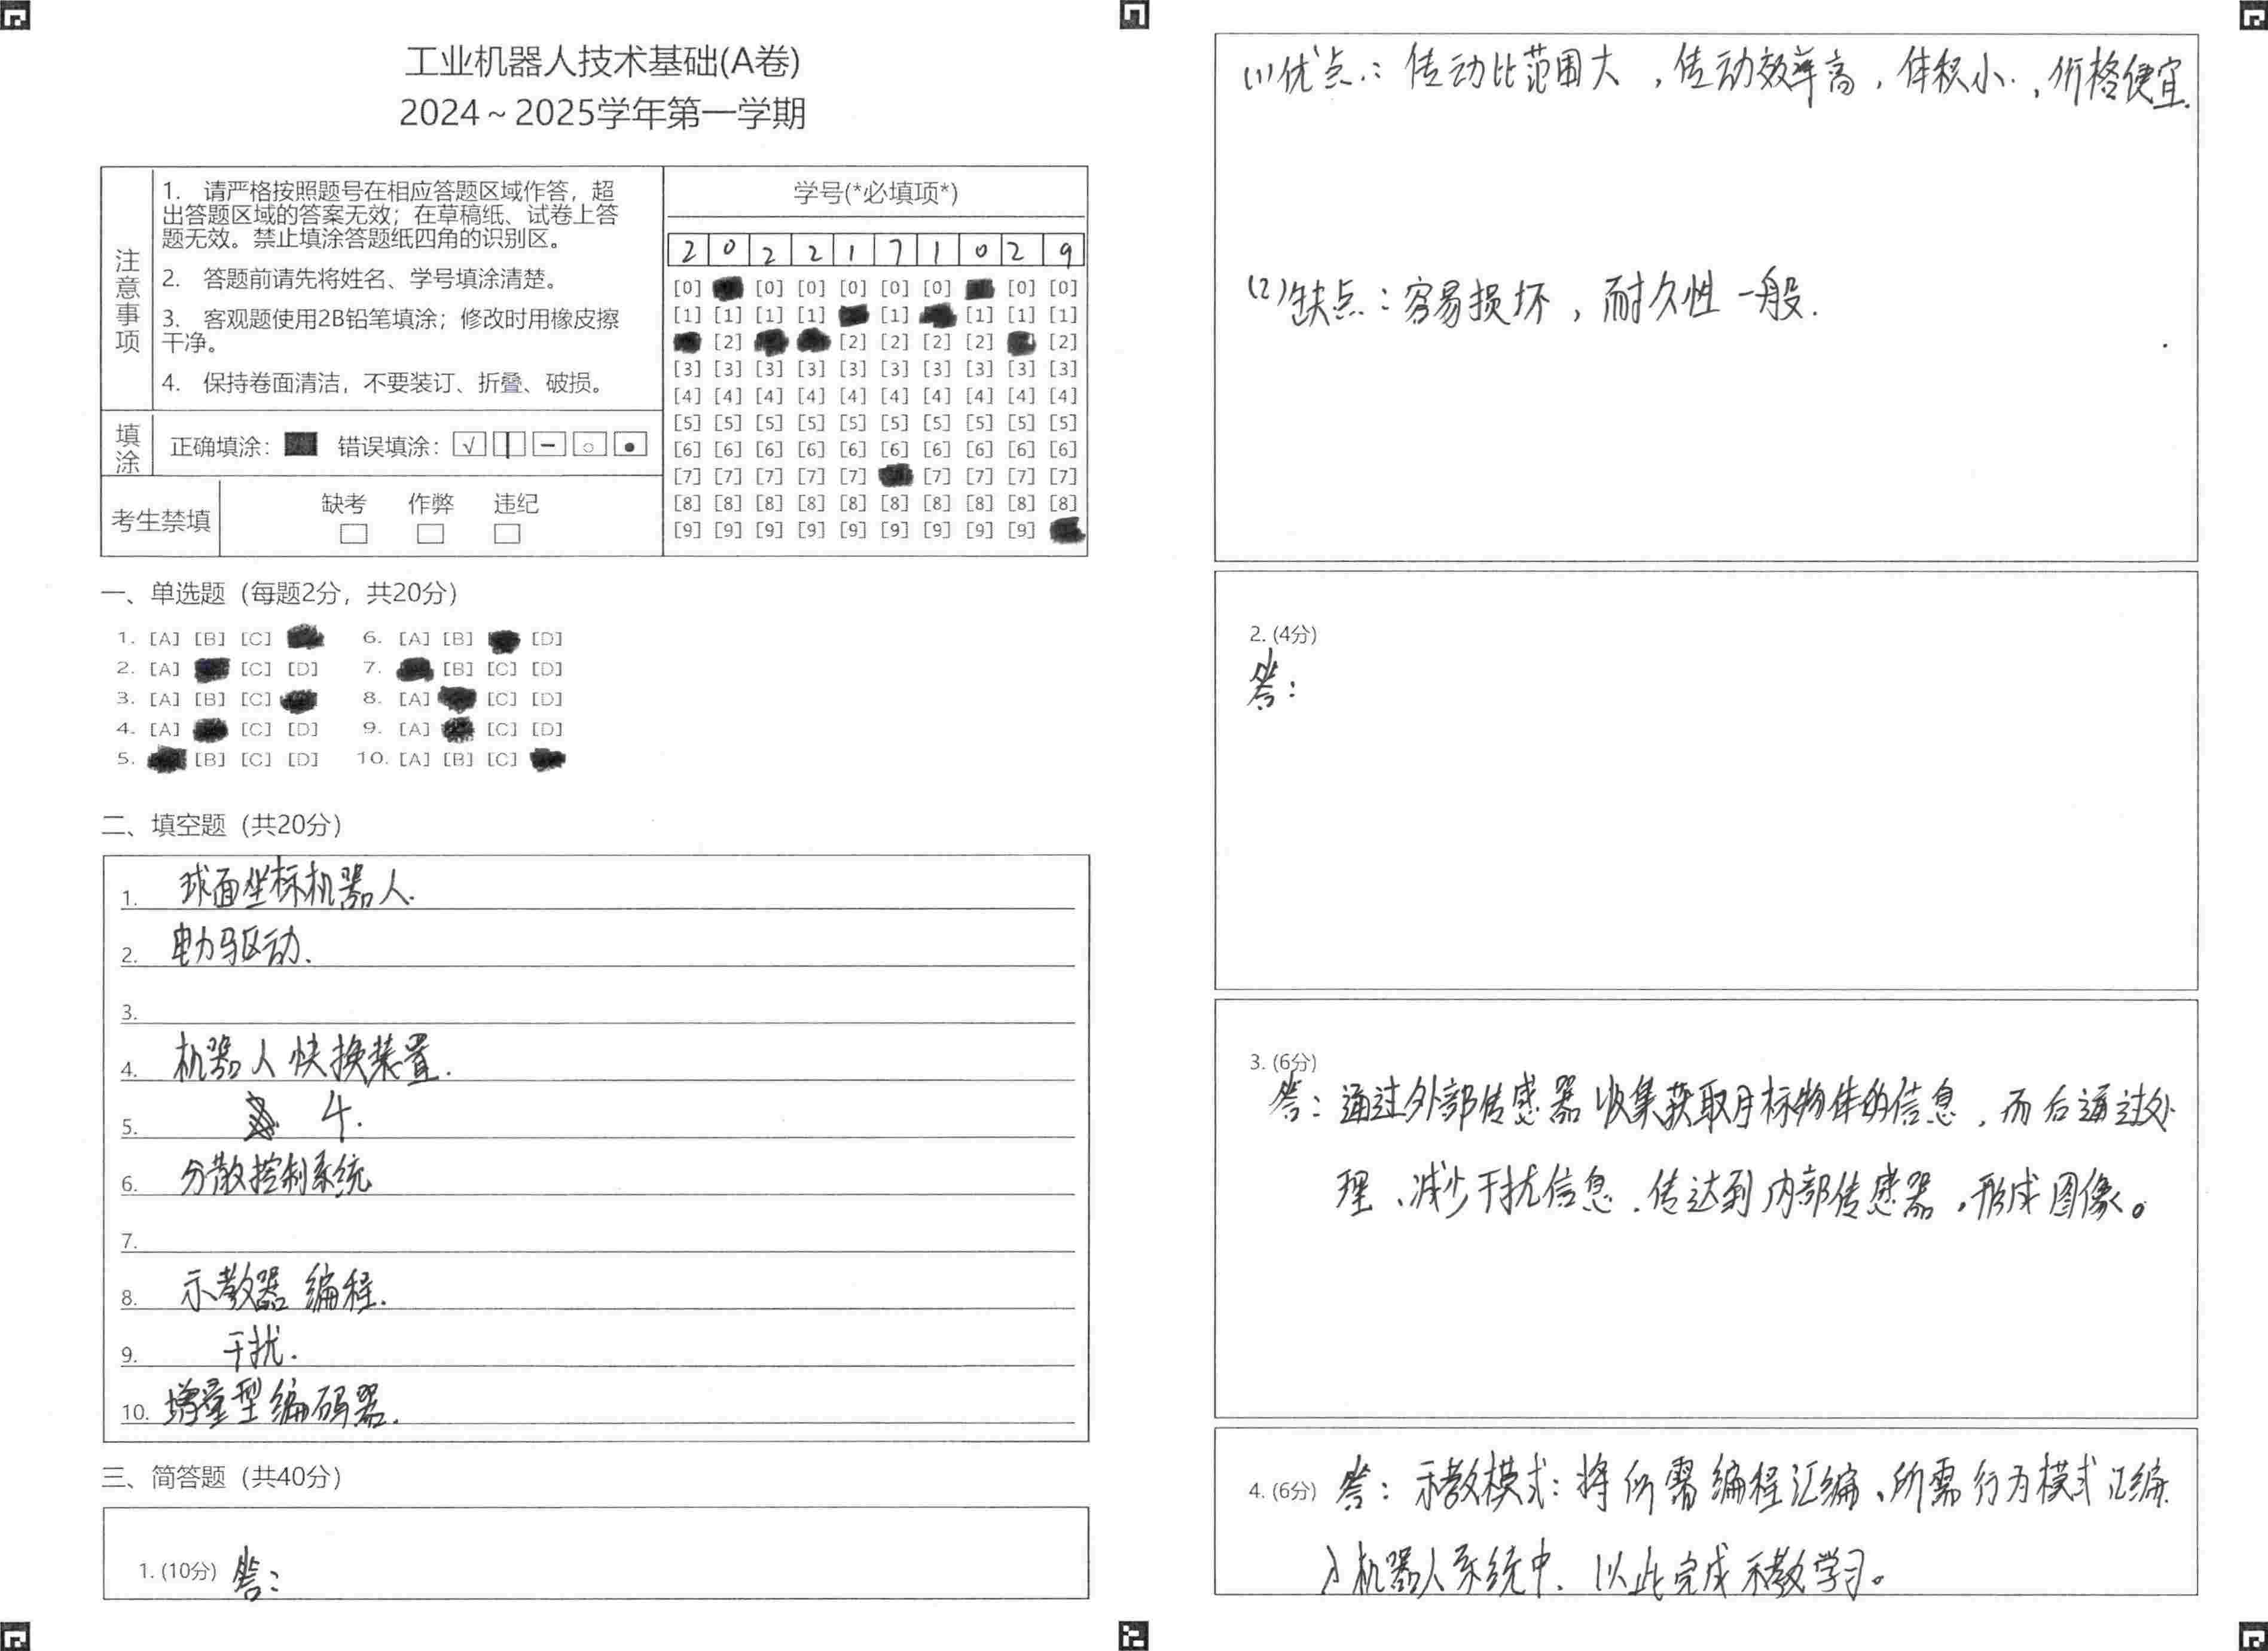 工业机器人技术基础(A卷)
2024～2025学年第一学期
注意事项
1. 请严格按照题号在相应答题区域作答，超
出答题区域的答案无效；在草稿纸、试卷上答
题无效。禁止填涂答题纸四角的识别区。
2. 答题前请先将姓名、学号填涂清楚。
3. 客观题使用2B铅笔填涂；修改时用橡皮擦
干净。
4. 保持卷面清洁，不要装订、折叠、破损。
填涂 正确填涂： 错误填涂：
考生禁填 缺考 作弊 违纪
学号(*必填项*)
2 0 2 2 1 7 1 0 2 9
[0] [0] [0] [0] [0] [0] [0] [0]
[1] [1] [1] [1] [1] [1] [1] [1]
[2] [2] [2] [2] [2] [2]
[3] [3] [3] [3] [3] [3] [3] [3] [3] [3]
[4] [4] [4] [4] [4] [4] [4] [4] [4] [4]
[5] [5] [5] [5] [5] [5] [5] [5] [5] [5]
[6] [6] [6] [6] [6] [6] [6] [6] [6] [6]
[7] [7] [7] [7] [7] [7] [7] [7] [7]
[8] [8] [8] [8] [8] [8] [8] [8] [8] [8]
[9] [9] [9] [9] [9] [9] [9] [9] [9]
一、单选题（每题2分，共20分）
1. [A] [B] [C] 6. [A] [B] [D]
2. [A] [C] [D] 7. [B] [C] [D]
3. [A] [B] [C] 8. [A] [C] [D]
4. [A] [C] [D] 9. [A] [C] [D]
5. [B] [C] [D] 10. [A] [B] [C]
二、填空题（共20分）
1. 球面坐标机器人.
2. 电力驱动.
3.
4. 机器人快换装置.
5. 4.
6. 分散控制系统
7.
8. 示教器编程.
9. 干扰.
10. 增量型编码器.
三、简答题（共40分）
1. (10分) 答：
(1)优点：传动比范围大，传动效率高，体积小，价格便宜.
(2)缺点：容易损坏，耐久性一般.
2. (4分)
答：
3. (6分)
答：通过外部传感器收集获取目标物体的信息，而后通过处
理、减少干扰信息.传达到内部传感器，形成图像。
4. (6分) 答：示教模式：将所需编程汇编、所需行为模式汇编
入机器人系统中.以此完成示教学习。